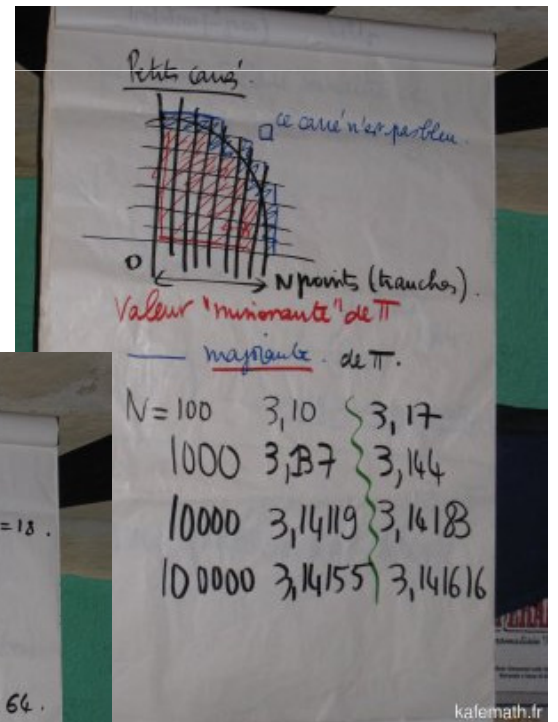 Petits carrés.
ce carré n'est pas bleu.
O
N points (tranches).
Valeur "minorante" de π
— majorante. de π.
N = 100 3,10 3,17
1000 3,137 3,144
10000 3,14119 3,14183
100000 3,14155 3,141616
= 18.
64.
kafemath.fr